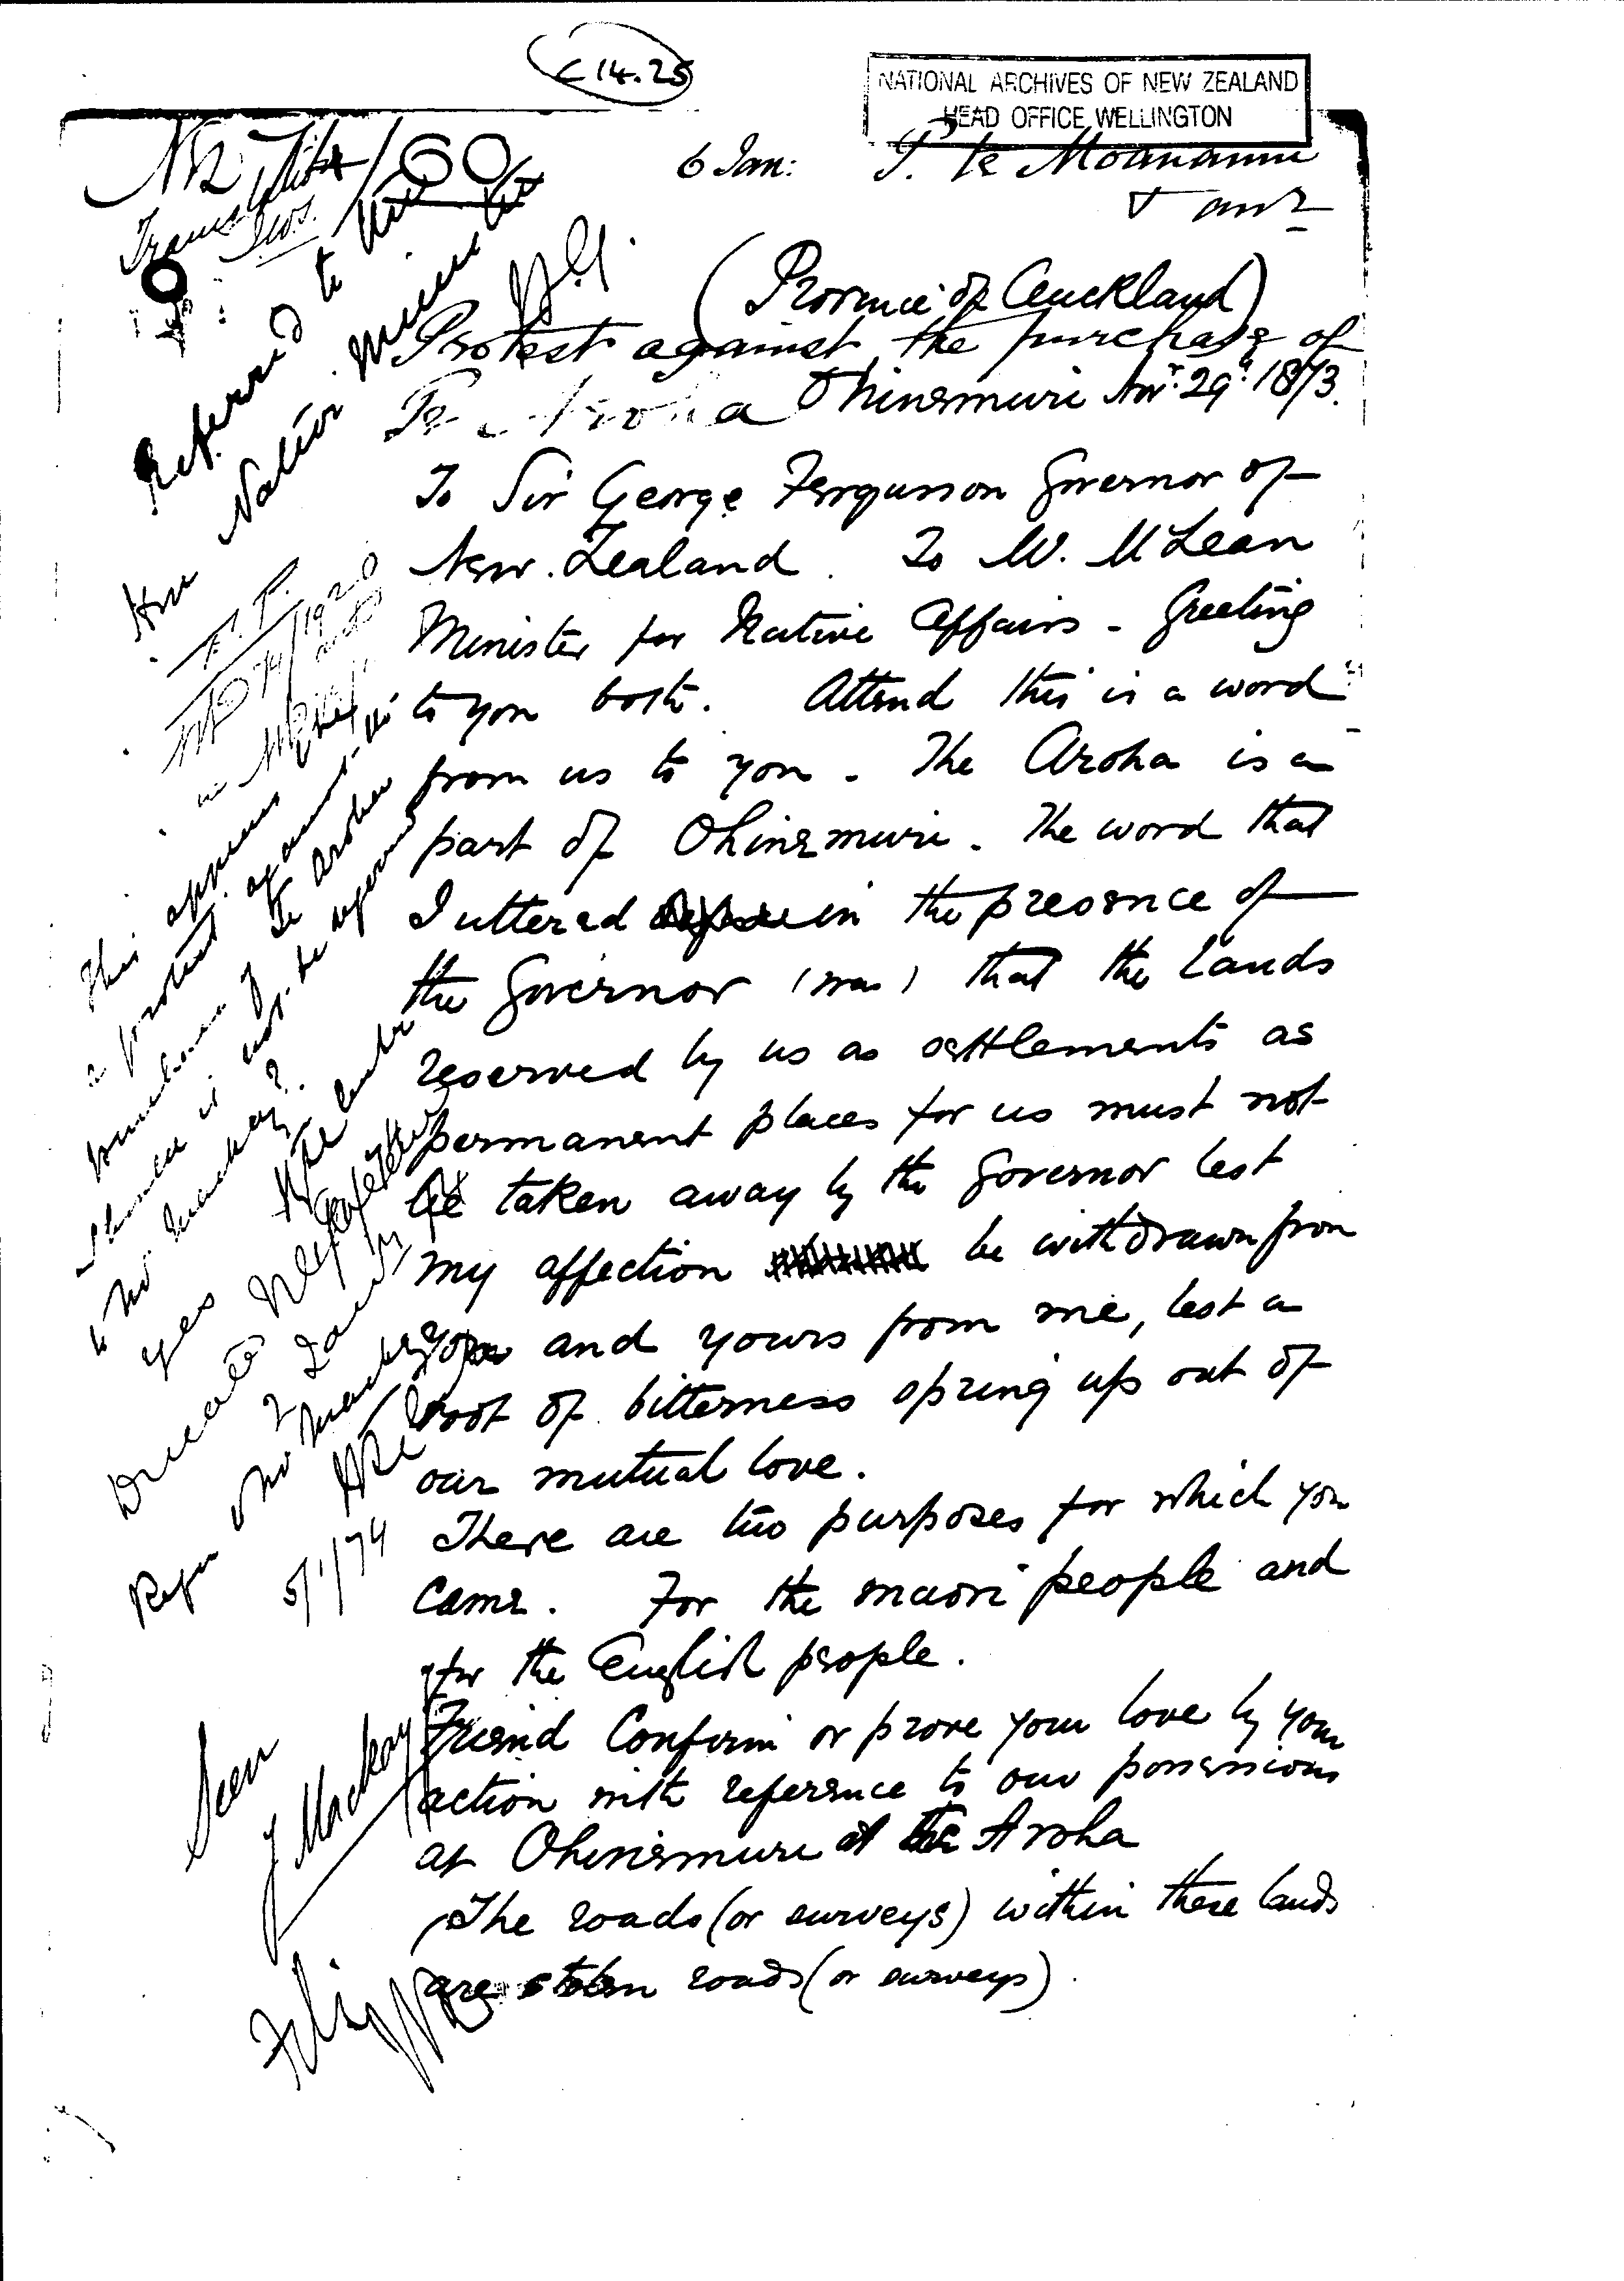 C 14.25
NATIONAL ARCHIVES OF NEW ZEALAND
HEAD OFFICE, WELLINGTON
6 Jan: P. te Moananui
60
(Province of Auckland)
Protest against the purchase of
Te Aroha
Ohinemuri Nov. 29th 1873.
To Sir George Fergusson Governor of
New Zealand. To M. McLean
Minister for Native Affairs - Greeting
to you both. Attend this is a word
from us to you - The Aroha is a
part of Ohinemuri. The word that
I uttered in the presence of
the Governor (was) that the lands
reserved by us as settlements as
permanent places for us must not
be taken away by the Governor lest
my affection be withdrawn from
you and yours from me, lest a
root of bitterness spring up out of
our mutual love.
There are two purposes for which you
came. For the maori people and
for the English people.
Friend Confirm or prove your love by your
action with reference to our possessions
at Ohinemuri at the Aroha
The roads (or surveys) within these lands
are stolen roads (or surveys).
Referred to the
Hon Native Minister
This appears
a protest against the
purchase of Te Aroha
to Mr Mackay?
yes
Refer Mr Mackay
5/1/74
Seen
J Mackay
File